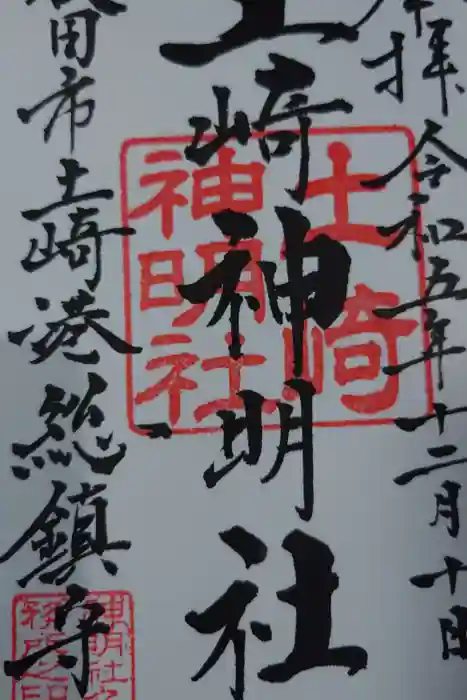 奉拝 令和五年十二月十日
土崎神明社
秋田市土崎港総鎮守
土崎
神明社
神明社之
務所之印